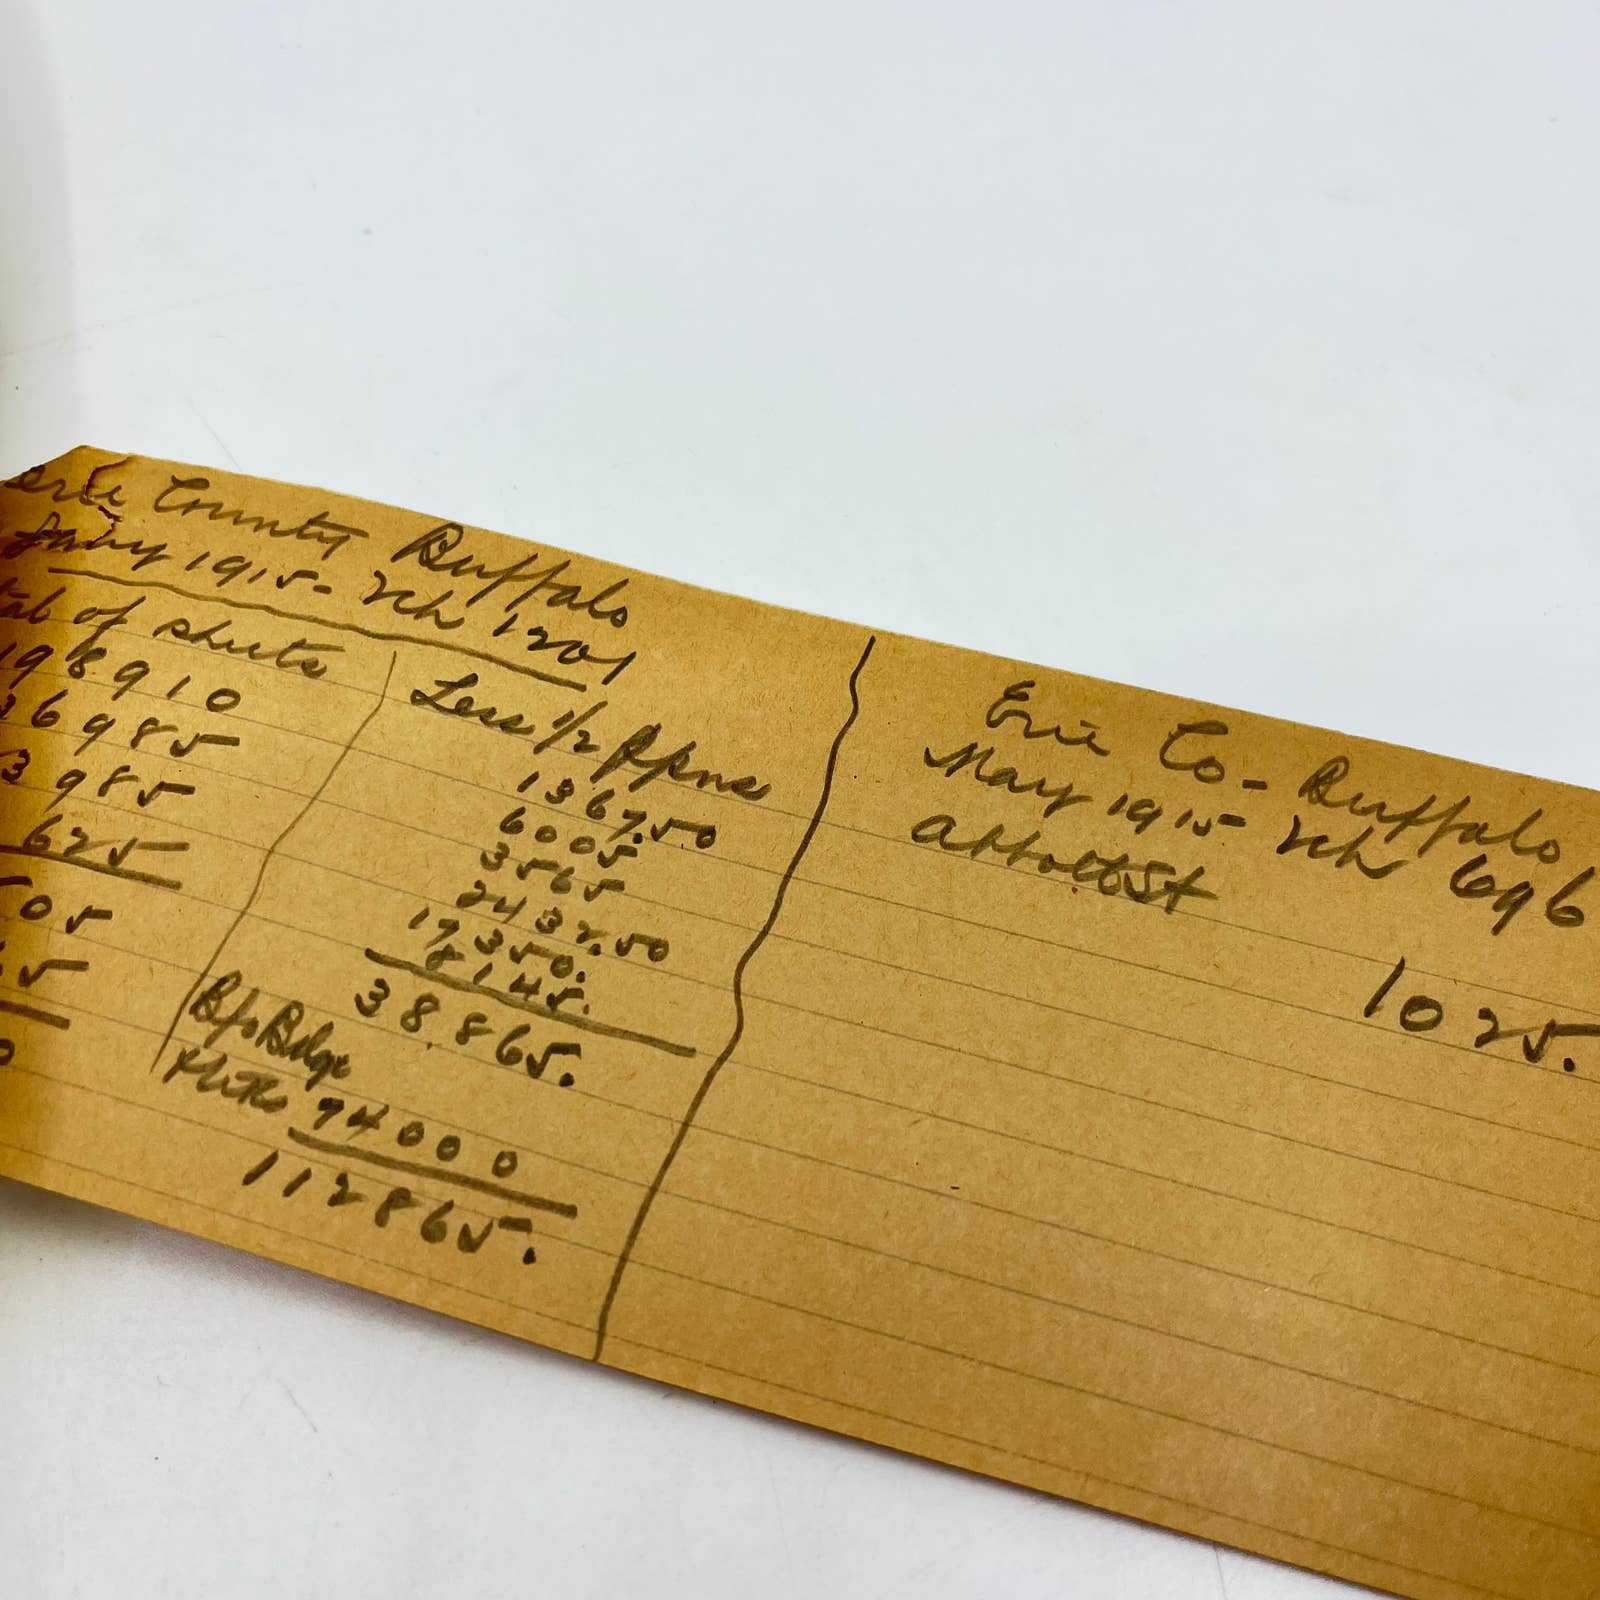 Erie County Buffalo
Jany 1915- Vch 1201
of sheets
198910
36985
3985
625
505
5
0
Less 1/2
1367.50
6005
3565
2432.50
17350.
8145.
38,865.
B/o Bldge
74000
112865.
Erie Co- Buffalo
May 1915 Vch 696
Abbott St
1025.